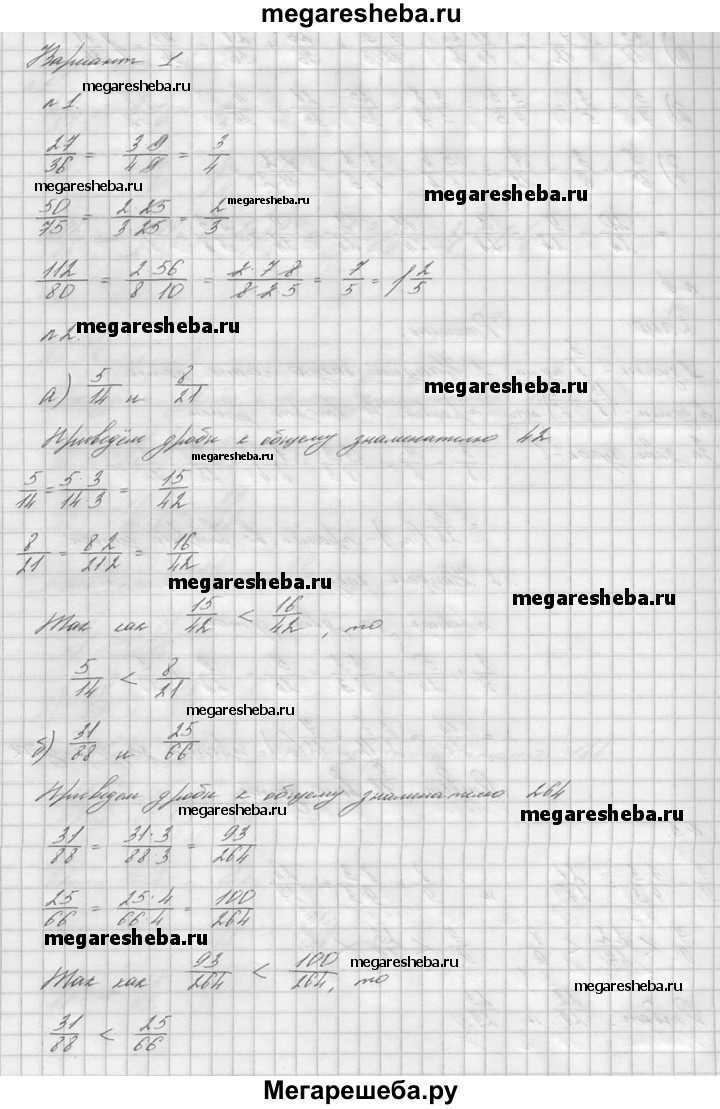 megaresheba.ru
Вариант 1.
megaresheba.ru
№1.
27/36 = 3·9/4·9 = 3/4
megaresheba.ru
megaresheba.ru
50/75 = 2·25/3·25 = 2/3
megaresheba.ru
112/80 = 2·56/8·10 = 2·7·8/8·2·5 = 7/5 = 1 2/5
№2.
megaresheba.ru
а) 5/14 и 8/21
megaresheba.ru
Приведём дроби к общему знаменателю 42
megaresheba.ru
5/14 = 5·3/14·3 = 15/42
8/21 = 8·2/21·2 = 16/42
megaresheba.ru
megaresheba.ru
Так как 15/42 < 16/42, то
5/14 < 8/21
megaresheba.ru
б) 31/88 и 25/66
Приведем дроби к общему знаменателю 264
megaresheba.ru
megaresheba.ru
31/88 = 31·3/88·3 = 93/264
25/66 = 25·4/66·4 = 100/264
megaresheba.ru
megaresheba.ru
Так как 93/264 < 100/264, то
megaresheba.ru
31/88 < 25/66
Мегарешеба.ру